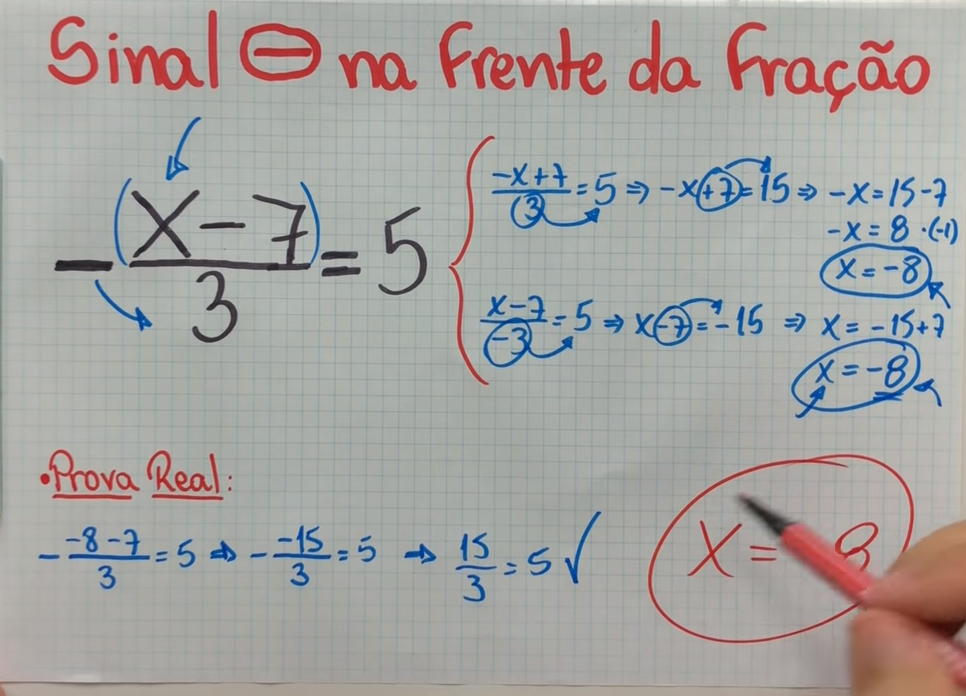 Sinal ⊖ na frente da fração
-(x-7)/3 = 5
(-x+7)/3 = 5 ⇒ -x+7 = 15 ⇒ -x = 15-7
-x = 8 ·(-1)
x = -8
(x-7)/-3 = 5 ⇒ x-7 = -15 ⇒ x = -15+7
x = -8
•Prova Real:
-(-8-7)/3 = 5 → -(-15)/3 = 5 → 15/3 = 5 ✓
X = 8